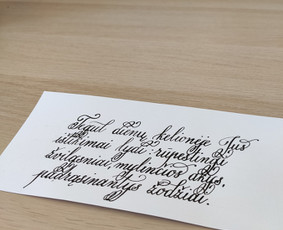 Tegul dienų kelionėje Jus
ištikimai lydi: rūpestingi
žvilgsniai, mylinčios akys,
padrąsinantys žodžiai.